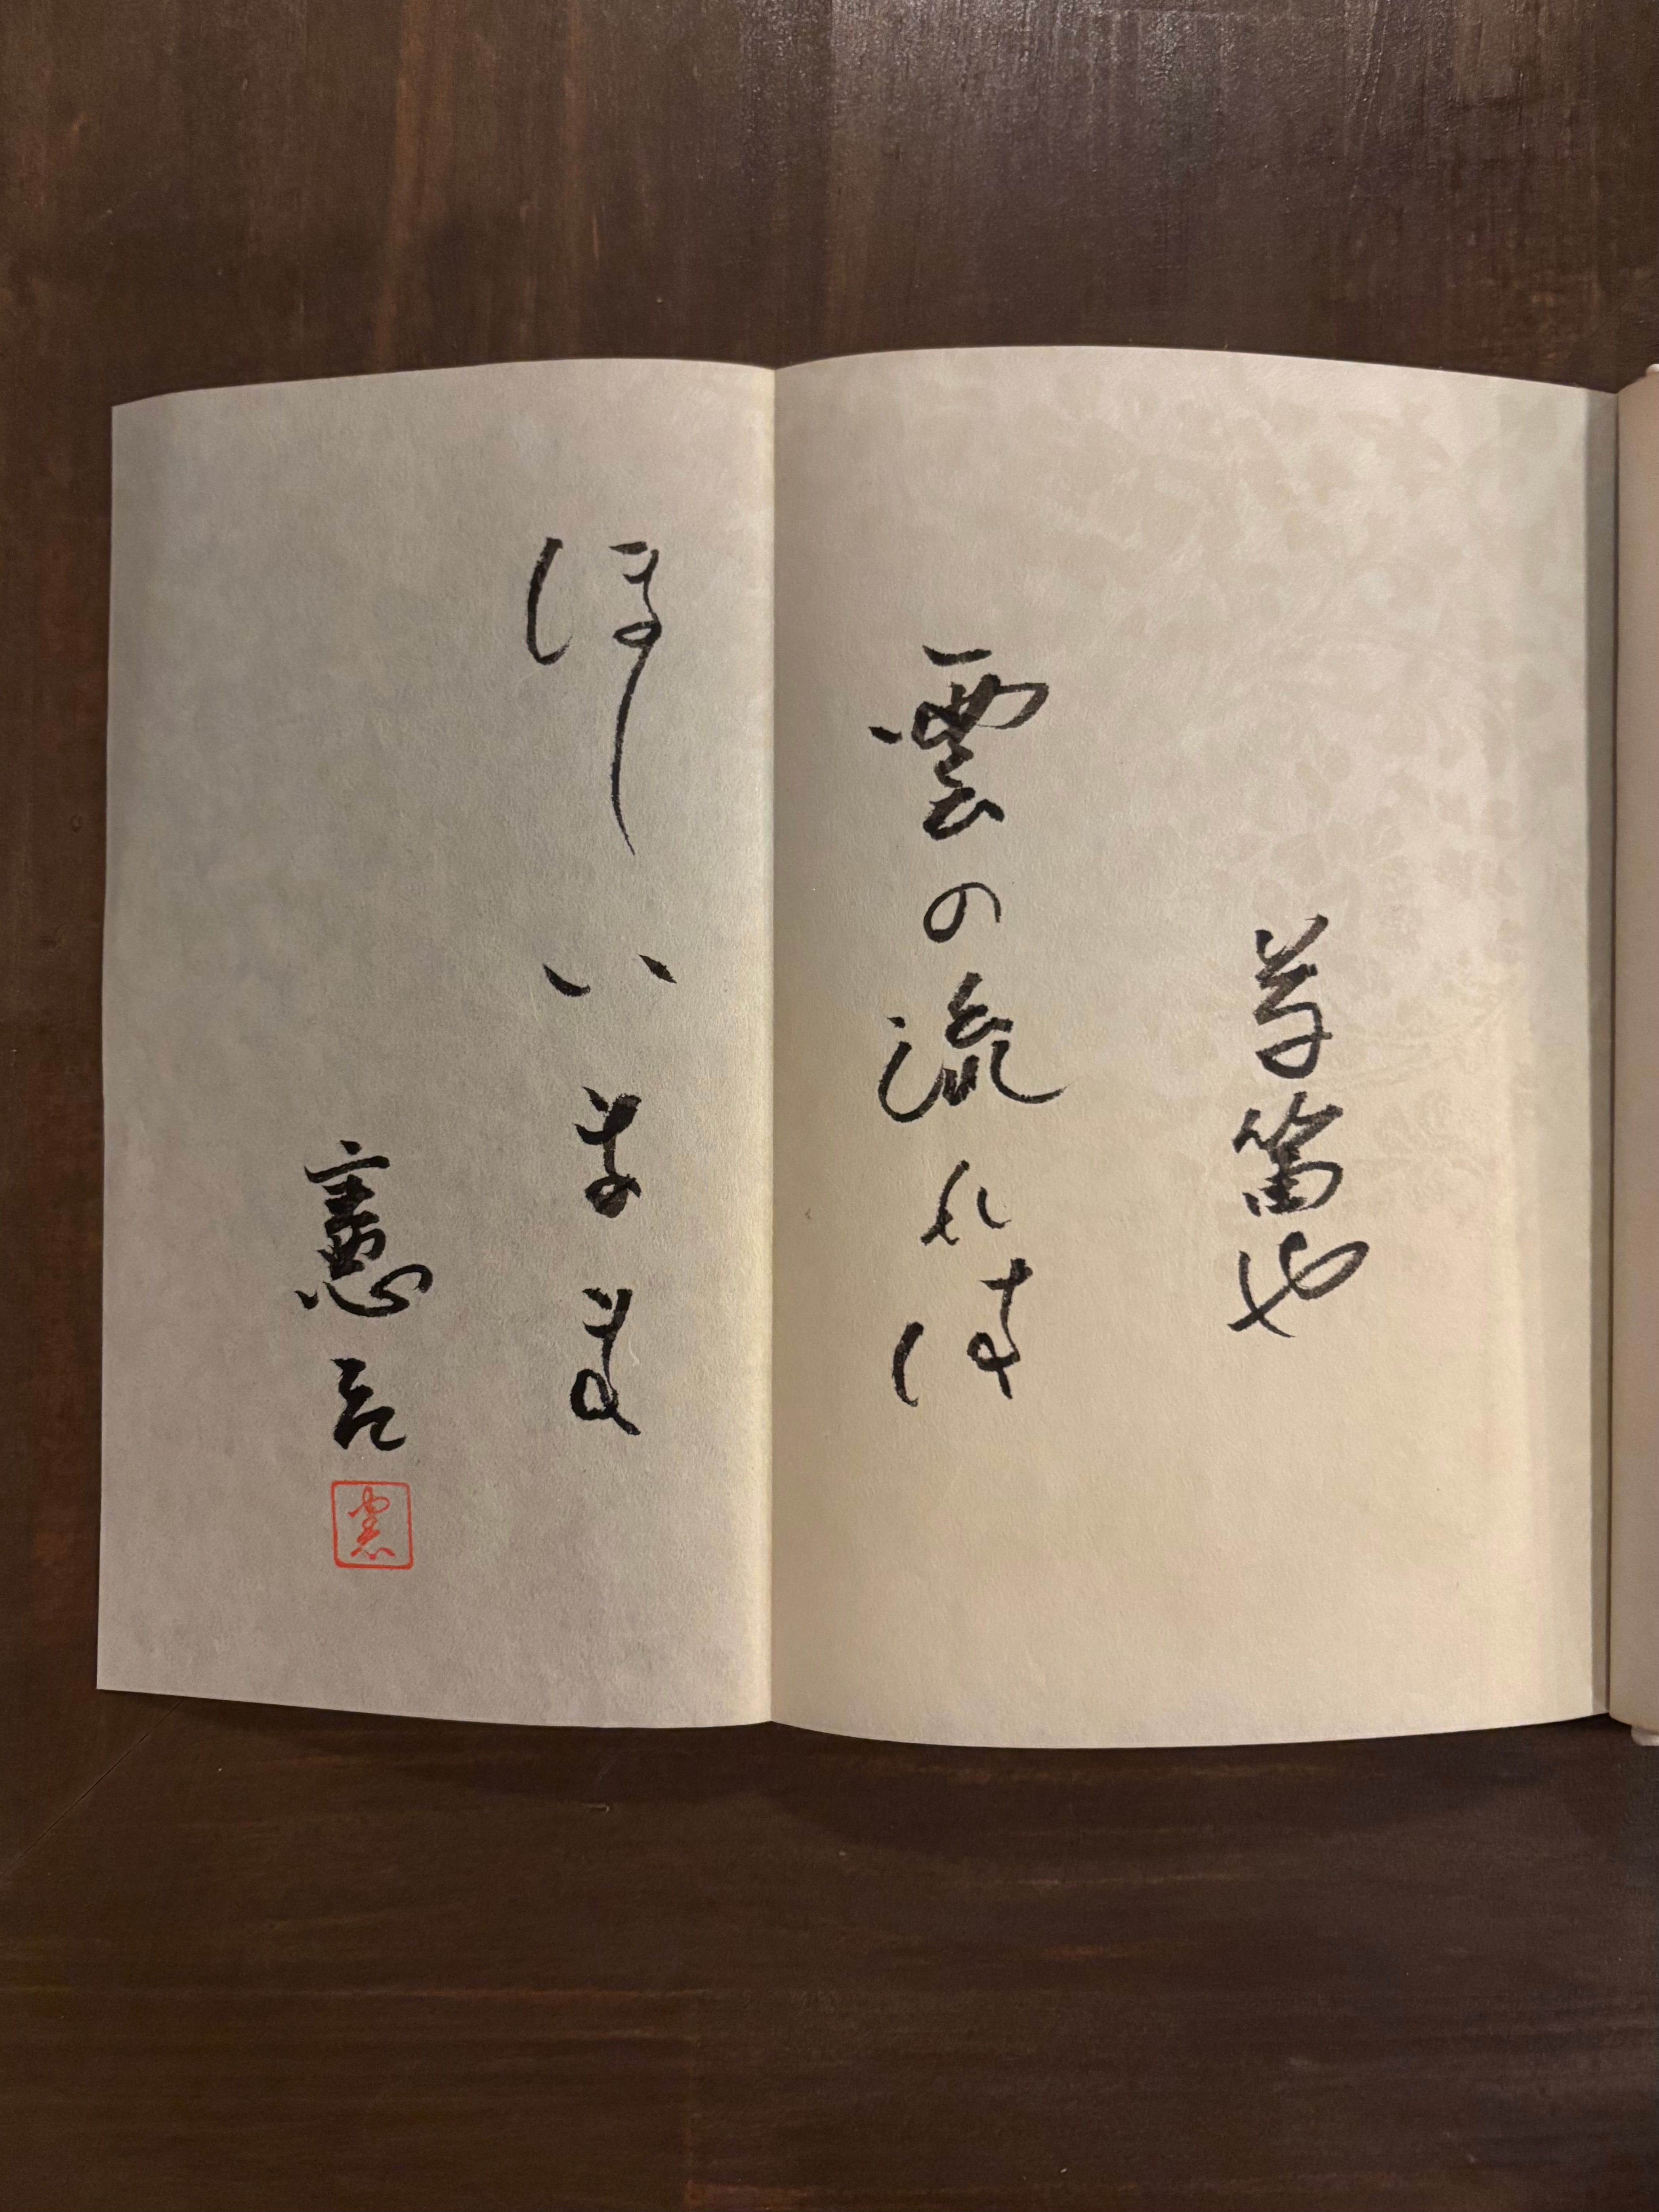 草笛や
雲の流れは
ほしいまま
憲吉
憲